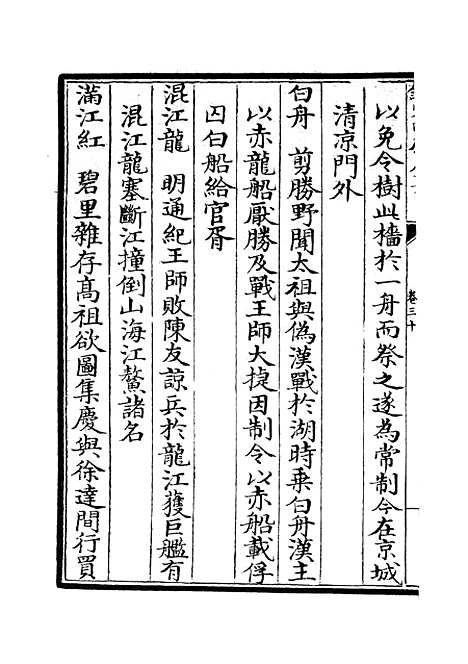 以免令樹此檣於一舟而祭之遂為常制今在京城
清凉門外
白舟　剪勝野聞太祖與偽漢戰於湖時乗白舟漢主
以赤龍船厭勝及戰王師大捷因制令以赤船載俘
囚白船給官胥
混江龍　明通紀王師敗陳友諒兵於龍江獲巨艦有
混江龍塞斷江撞倒山海江鰲諸名
滿江紅　碧里雜存髙祖欲圖集慶與徐達間行買
卷三十